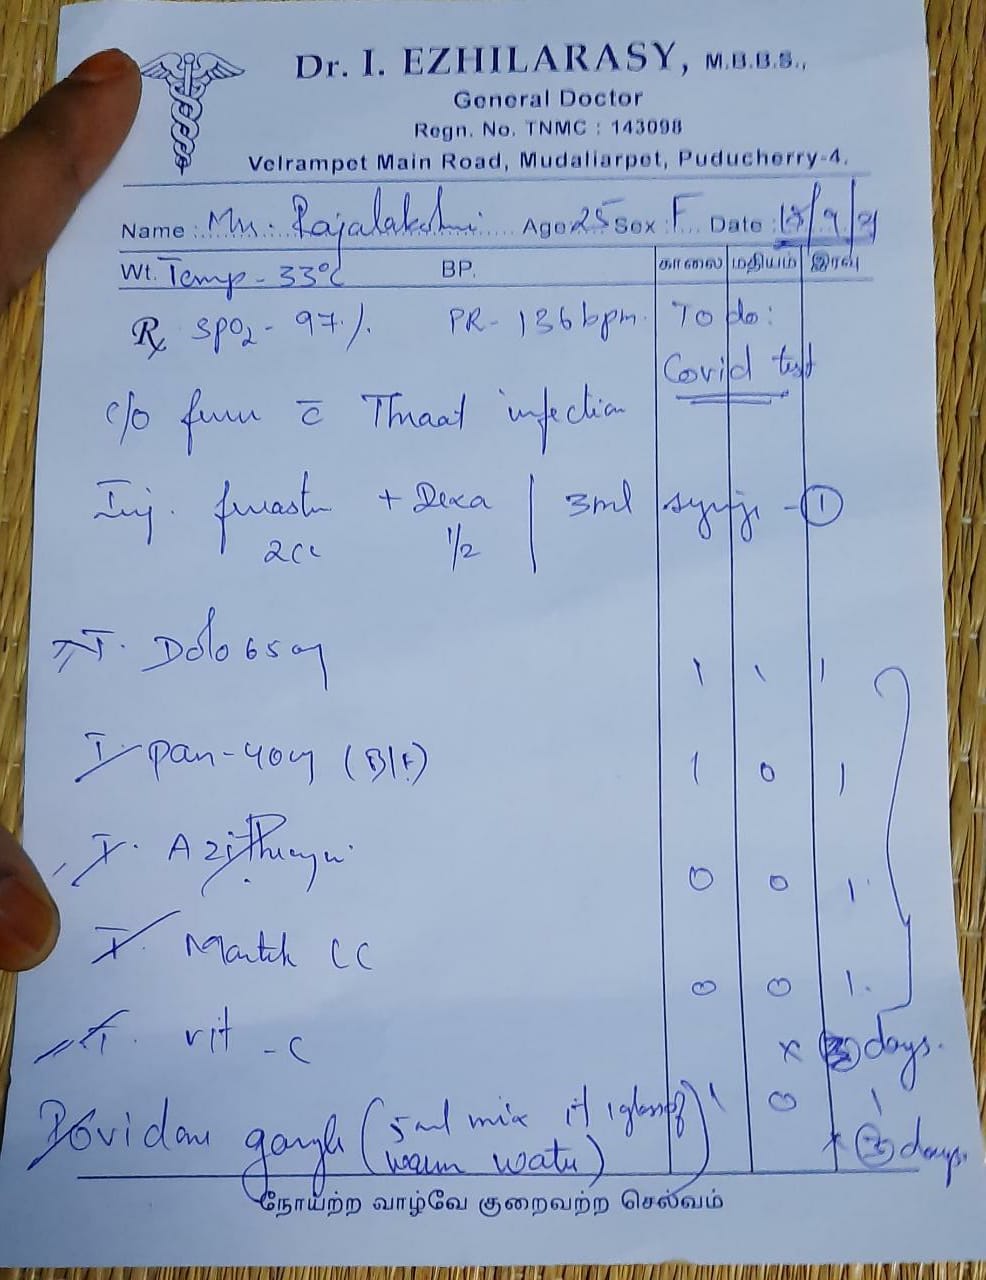 Dr. I. EZHILARASY, M.B.B.S.,
General Doctor
Regn. No. TNMC : 143098
Velrampet Main Road, Mudaliarpet, Puducherry-4.
Name : Rajalakshmi Age 25 Sex : F Date :
Wt. Temp - 33°C BP. காலை மதியம் இரவு
Rx SPO2 - 97% PR- 136 bpm. To do:
Covid test
c/o c̄ Throat infection
Inj. + Dexa 3ml - 1
2cc 1/2
T. Dolo 650 1 1 1
T. pan-40 (B/F) 1 0 1
T. 0 0 1
T. CC 0 0 1
T. vit - C x days.
Povidone gargle (5ml mix 1 glass of warm water) 1 0 1
x 3 days.
நோயற்ற வாழ்வே குறைவற்ற செல்வம்